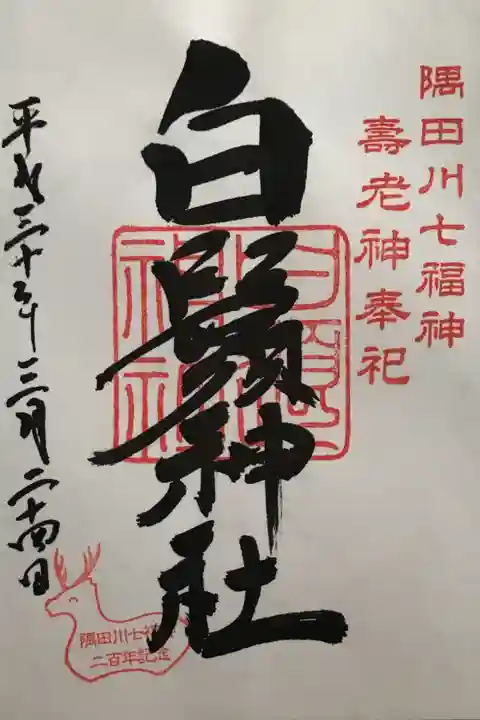 隅田川七福神
壽老神奉祀
白鬚神社
平成三十年三月二十四日
白鬚神社
隅田川七福神
二百年記念